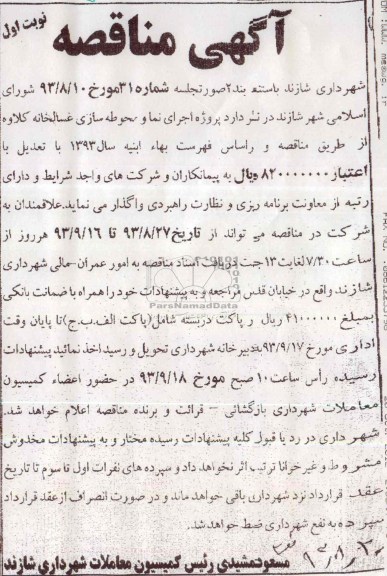 نوبت اول
آگهی مناقصه
شهرداری شازند باستناد بند۲صورتجلسه شماره۳۱مورخ ۹۳/۸/۱۰ شورای
اسلامی شهر شازند در نظر دارد پروژه اجرای نما و محوطه سازی غسالخانه کلاوه
از طریق مناقصه و راساس فهرست بهاء ابنیه سال۱۳۹۳ با تعدیل با
اعتبار ۸۲۰۰۰۰۰۰۰ ریال به پیمانکاران و شرکت های واجد شرایط و دارای
رتبه از معاونت برنامه ریزی و نظارت راهبردی واگذار می نماید.علاقمندان به
شرکت در مناقصه می تواند از تاریخ۹۳/۸/۲۷ تا ۹۳/۹/۱۶ هرروز از
ساعت ۷/۳۰لغایت ۱۳جهت دریافت اسناد مناقصه به امور عمران-مالی شهرداری
شازند واقع در خیابان قدس مراجعه و به پیشنهادات خود را همراه با ضمانت بانکی
بمبلغ ۴۱۰۰۰۰۰۰ ریال و پاکت دربسته شامل(پاکت الف.ب.ج)تا پایان وقت
اداری مورخ ۹۳/۹/۱۷به دبیرخانه شهرداری تحویل و رسید اخذ نمائید پیشنهادات
رسیده رأس ساعت ۱۰ صبح مورخ ۹۳/۹/۱۸ در حضور اعضاء کمیسیون
معاملات شهرداری بازگشائی - قرائت و برنده مناقصه اعلام خواهد شد.
شهرداری در رد یا قبول کلیه پیشنهادات رسیده مختار و به پیشنهادات مخدوش
مشروط و غیر خوانا ترتیب اثر نخواهد داد و سپرده های نفرات اول تا سوم تا تاریخ
عقد قرارداد نزد شهرداری باقی خواهد ماند و در صورت انصراف از عقد قرارداد
سپرده به نفع شهرداری ضبط خواهد شد.
مسعود مشیدی رئیس کمیسیون معاملات شهرداری شازند
ParsNamadData